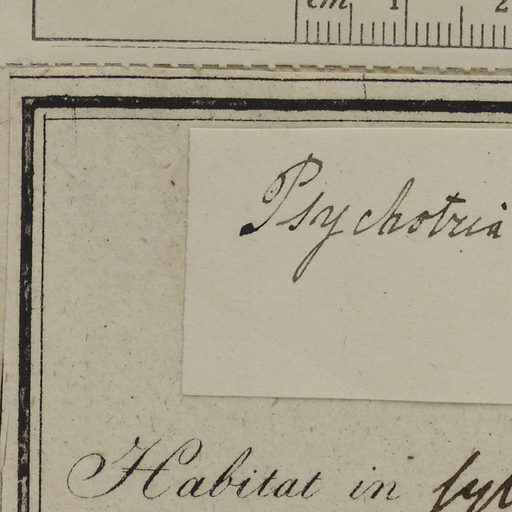 cm 1 2
Psychotria
Habitat in